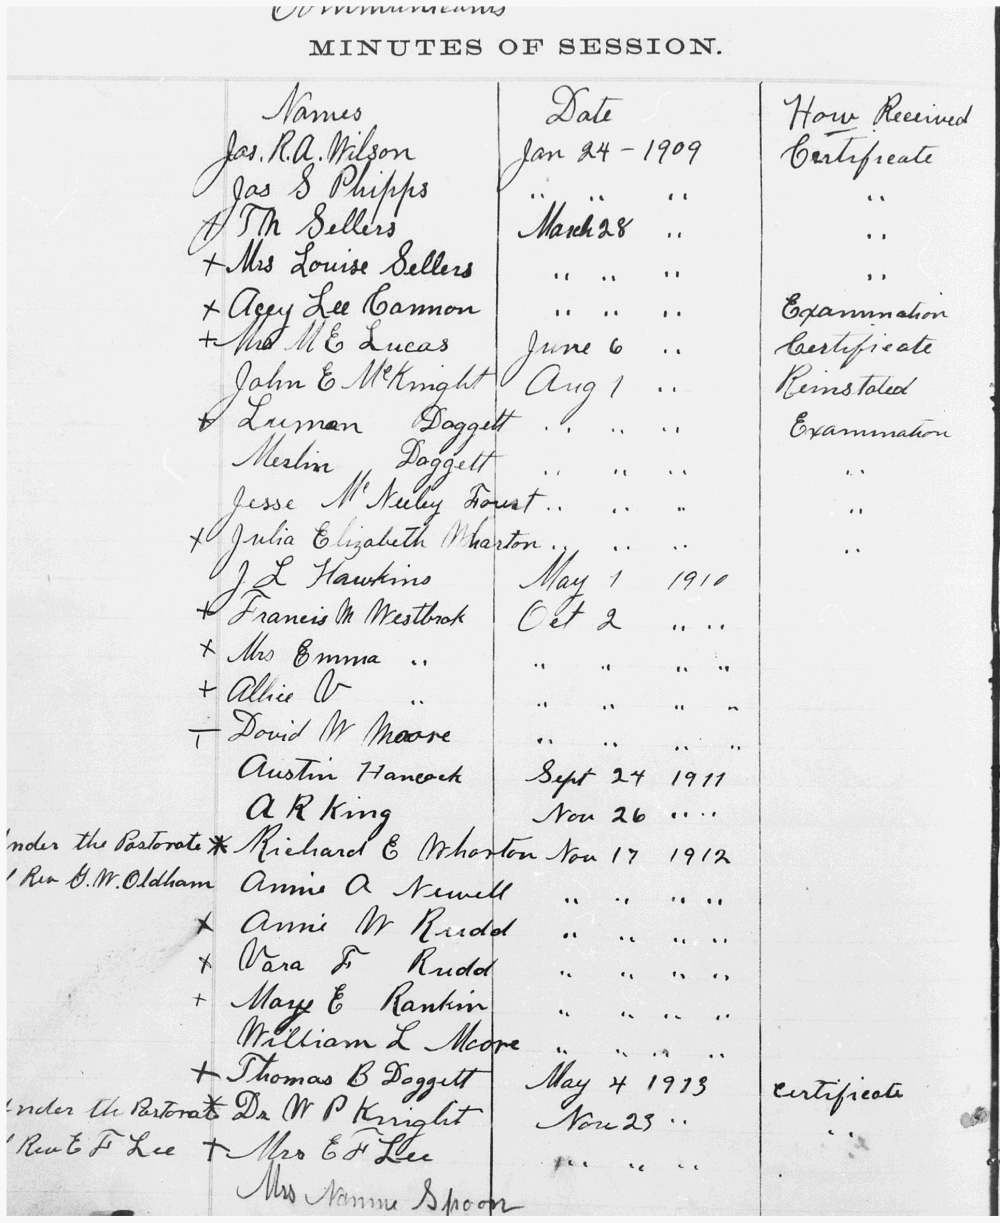 Communicants
MINUTES OF SESSION.
Names Date How Received
Jas. R. A. Wilson Jan 24 - 1909 Certificate
Jas S Phipps " " " "
+ T M Sellers March 28 " "
+ Mrs Louise Sellers " " " "
x Acey Lee Cannon " " " Examination
+ Mrs M E Lucas June 6 " Certificate
John E McKnight Aug 1 " Reinstated
x Luman Doggett " " " Examination
Merlin Doggett " " " "
Jesse McNeeley Foust " " " "
x Julia Elizabeth Wharton " " " "
J L Hawkins May 1 1910
+ Francis M Westbrok Oct 2 " "
x Mrs Emma " " " " "
+ Allice V " " " " "
David W Moore " " " "
Austin Hancock Sept 24 1911
A R King Nov 26 " "
Under the Pastorate * Richard E Wharton Nov 17 1912
Rev G. W. Oldham Annie A Newell " " " "
x Annie W Rudd " " " "
x Vara F Rudd " " " "
+ Marye E Rankin " " " "
William L Moore " " " "
+ Thomas B Doggett May 4 1913 Certificate
Under the Pastorate * Dr W P Knight Nov 23 " "
Rev E F Lee + Mrs E F Lee " " "
Mrs Nannie Spoon